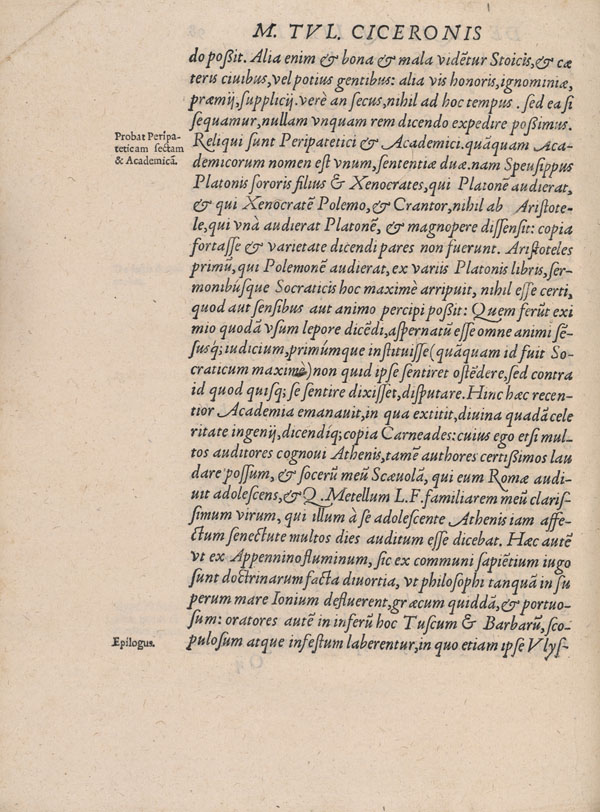 M. TVL. CICERONIS
do poßit. Alia enim & bona & mala vidẽtur Stoicis,& cæ
teris ciuibus,vel potius gentibus: alia vis honoris,ignominiæ,
præmij,supplicij.verè an secus,nihil ad hoc tempus . sed ea si
sequamur,nullam vnquam rem dicendo expedire poßimus.
Probat Peripa-
teticam sectam
& Academicã.
Reliqui sunt Peripatetici & Academici.quãquam Aca-
demicorum nomen est vnum,sententiæ duæ.nam Speusippus
Platonis sororis filius & Xenocrates,qui Platonẽ audierat,
& qui Xenocratẽ Polemo,& Crantor,nihil ab Aristote-
le,qui vnà audierat Platonẽ, & magnopere dissensit: copia
fortasse & varietate dicendi pares non fuerunt. Aristoteles
primũ,qui Polemonẽ audierat,ex variis Platonis libris,ser-
monibúsque Socraticis hoc maximè arripuit, nihil esse certi,
quod aut sensibus aut animo percipi poßit: Quem ferũt exi
mio quodã vsum lepore dicẽdi,aspernatũ esse omne animi sẽ-
susq; iudicium,primúmque instituisse(quãquam id fuit So-
craticum maximè)non quid ipse sentiret ostẽdere,sed contra
id quod quisq; se sentire dixisset,disputare.Hinc hæc recen-
tior Academia emanauit,in qua extitit,diuina quadã cele
ritate ingenij,dicendiq; copia Carneades:cuius ego etsi mul-
tos auditores cognoui Athenis,tamẽ authores certißimos lau
dare possum, & socerũ meũ Scæuolã, qui eum Romæ audi-
uit adolescens,& Q.Metellum L.F.familiarem meũ claris-
simum virum, qui illum à se adolescente Athenis iam affe-
ctum senectute multos dies auditum esse dicebat. Hæc autẽ
vt ex Appennino fluminum, sic ex communi sapiẽtium iugo
sunt doctrinarum facta diuortia, vt philosophi tanquã in su
perum mare Ionium defluerent,græcum quiddã,& portuo-
sum: oratores autẽ in inferũ hoc Tuscum & Barbarũ,sco-
Epilogus.
pulosum atque infestum laberentur,in quo etiam ipse Vlys-